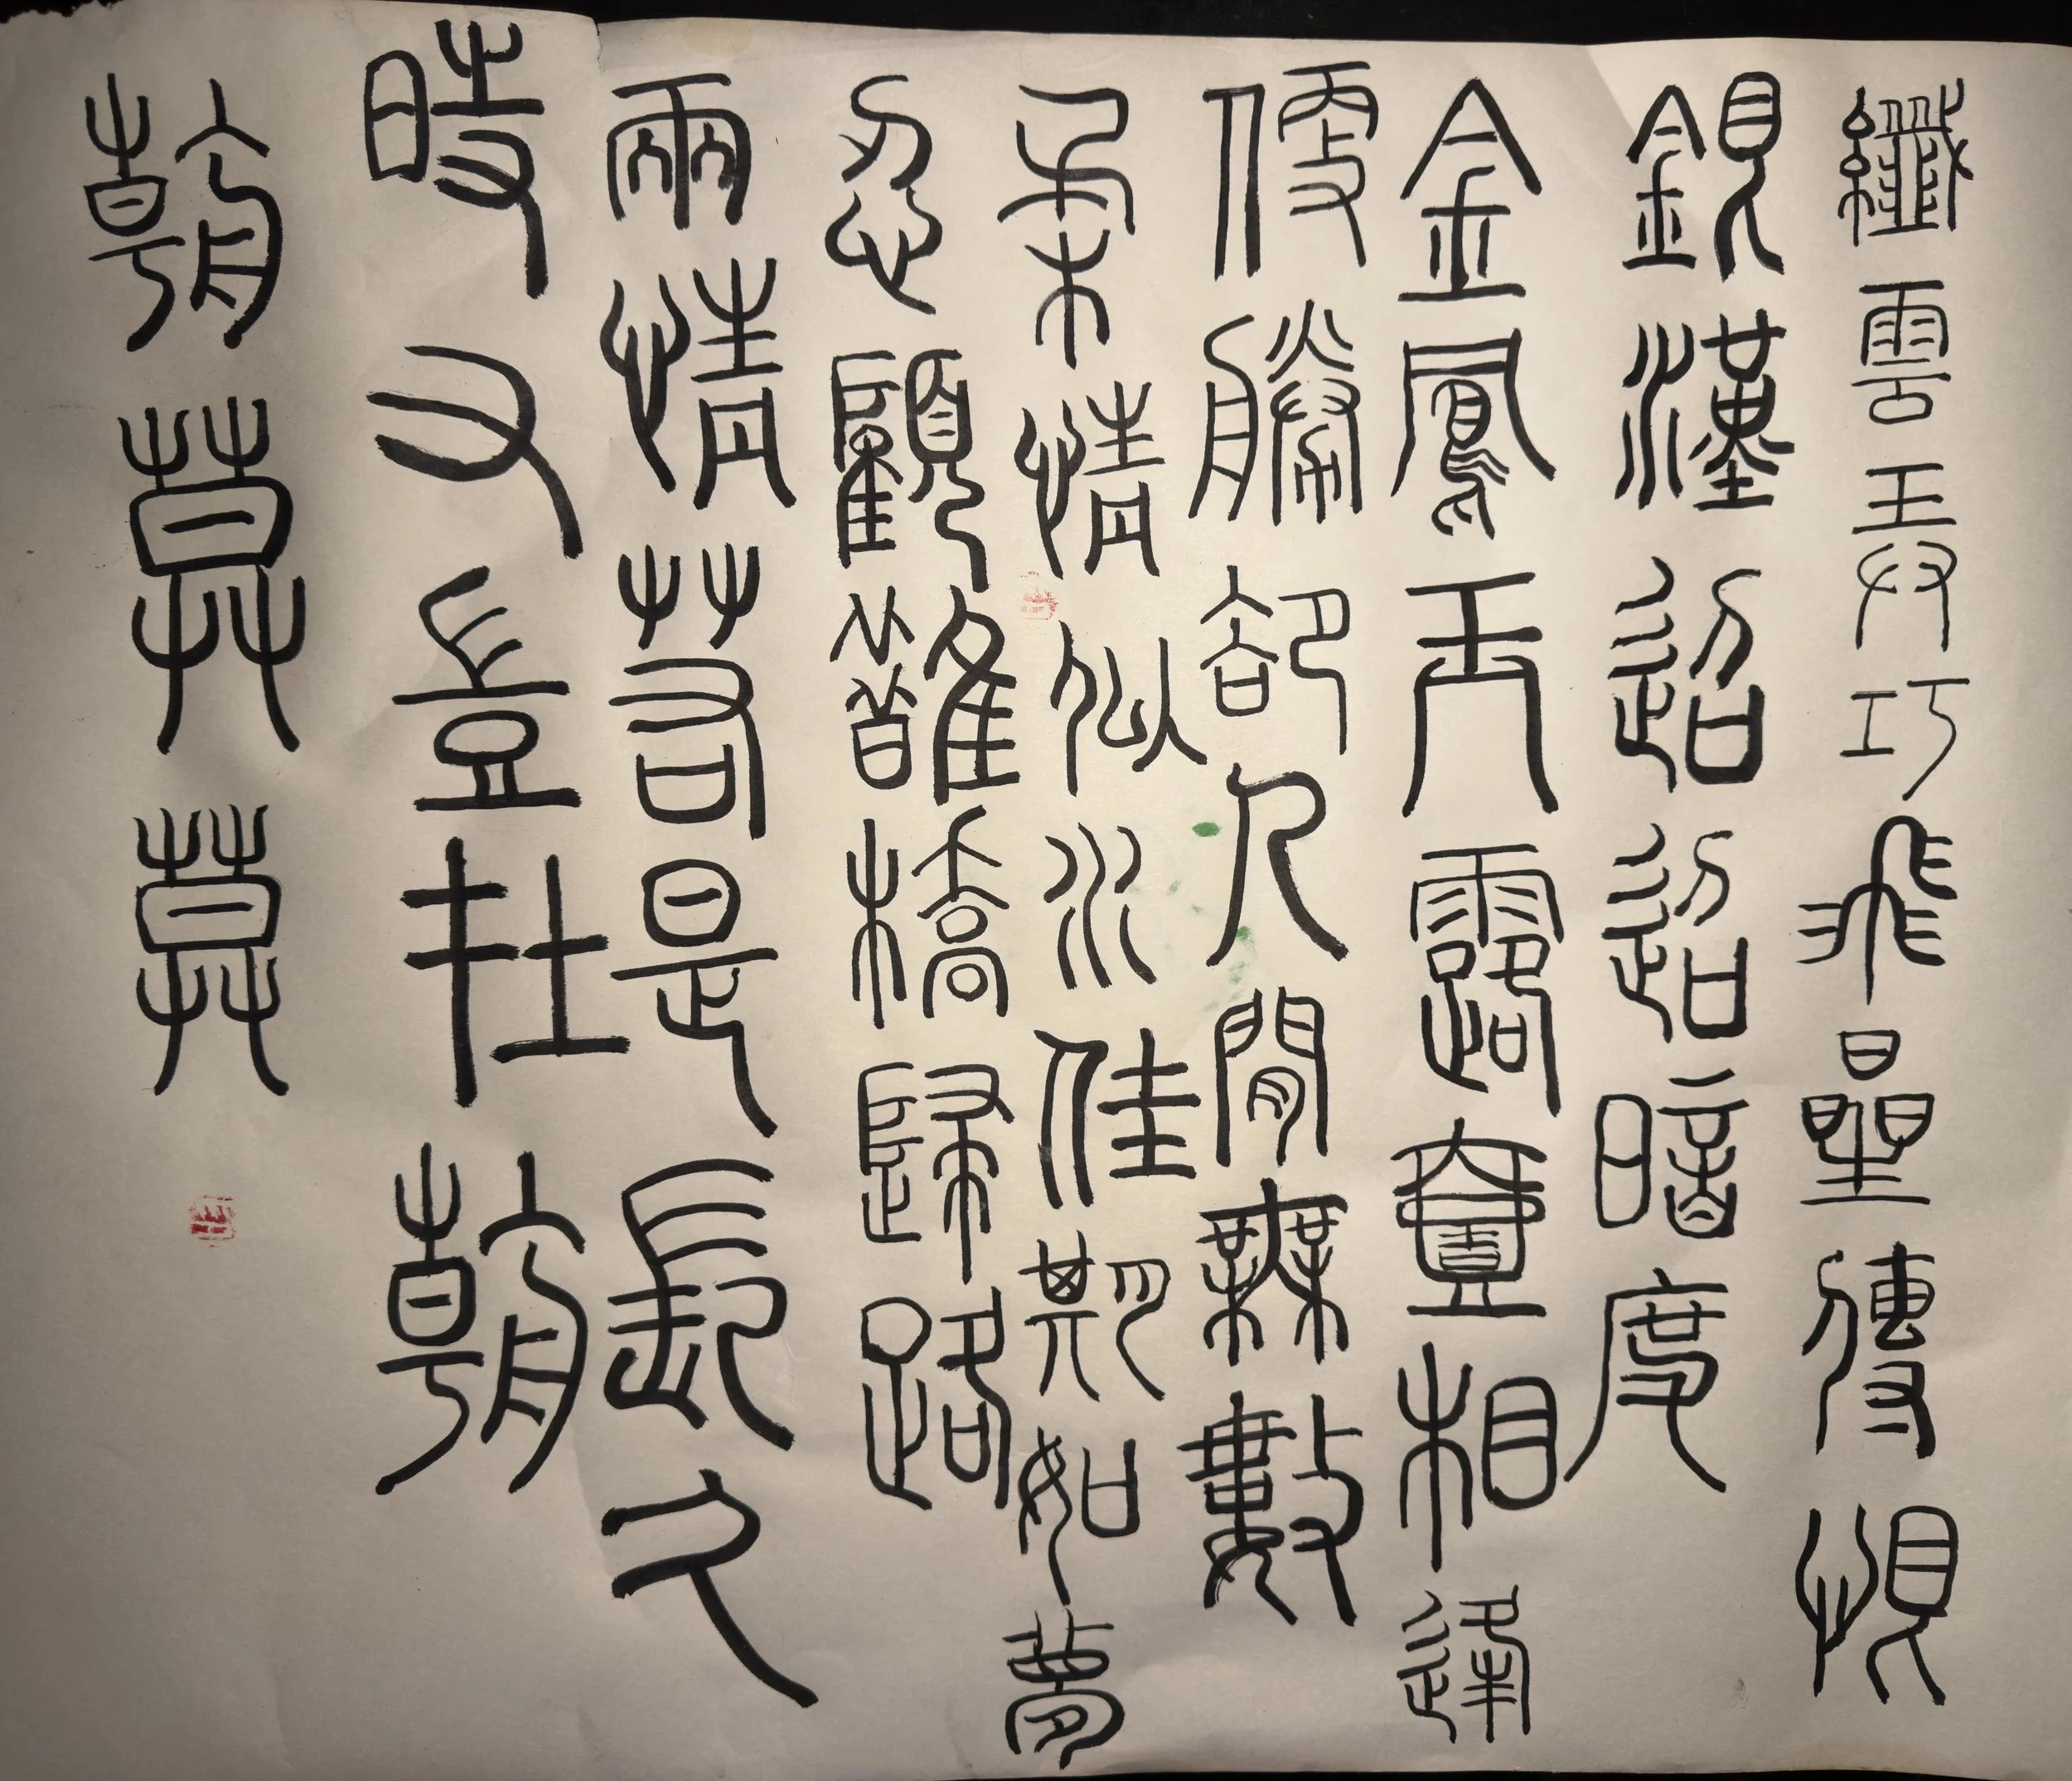 纖雲弄巧飛星傳恨
銀漢迢迢暗度
金鳳玉露壹相逢
便勝卻人間無數
柔情似水佳期如夢
忍顧鵲橋歸路
兩情若是長久
時又豈在朝
朝莫莫